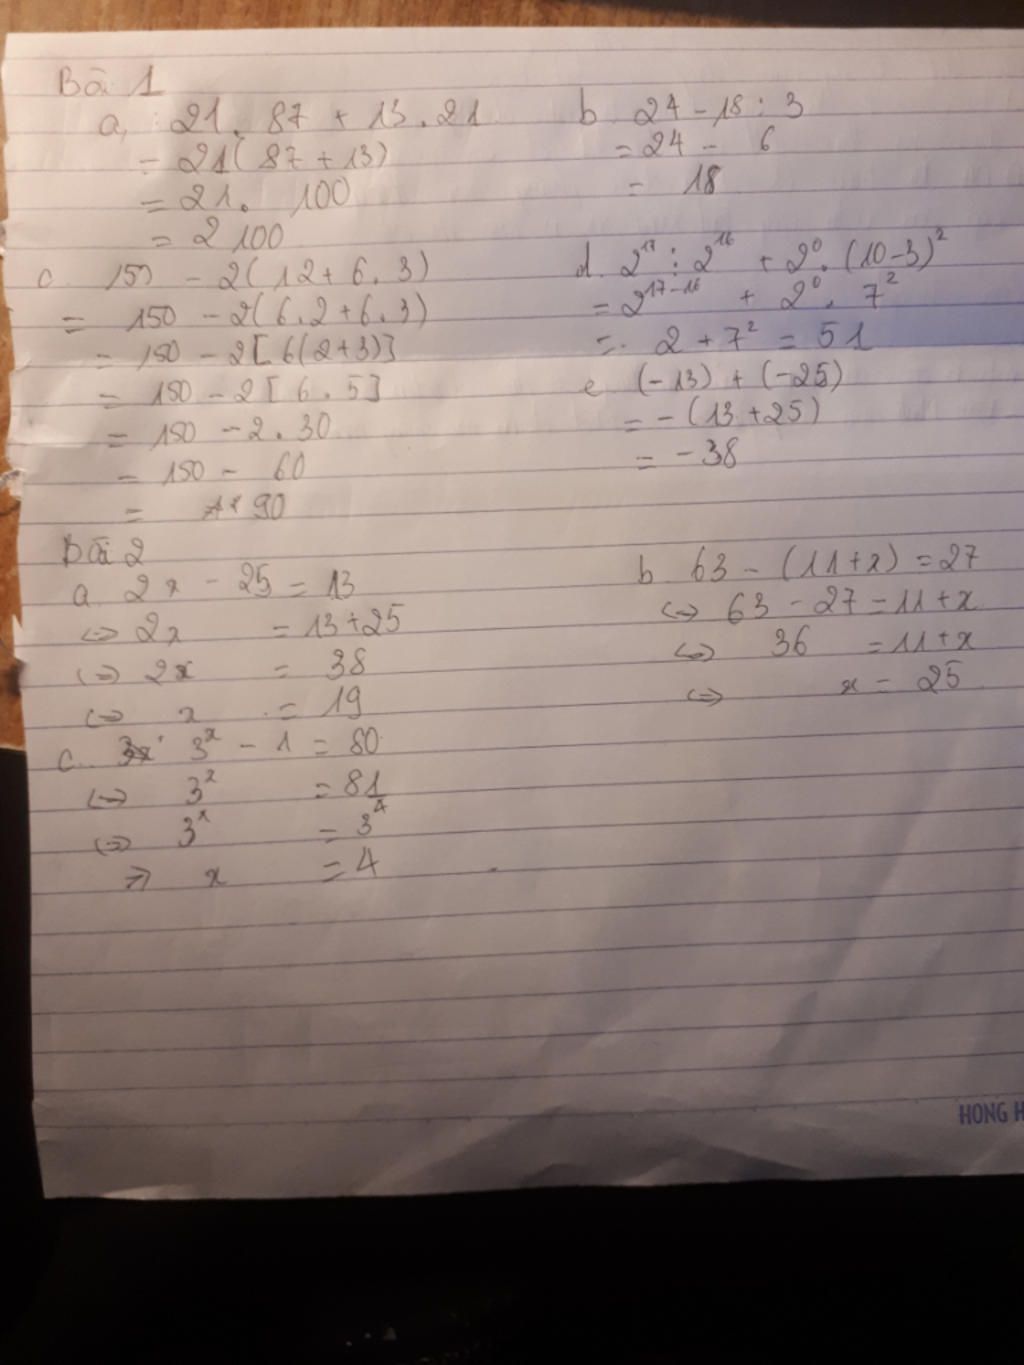 Bài 1
a, 21. 87 + 13.21
= 21(87 + 13)
= 21. 100
= 2100
b 24 - 18 : 3
= 24 - 6
= 18
c 150 - 2(12 + 6.3)
= 150 - 2(6.2 + 6.3)
= 150 - 2[6(2+3)]
= 150 - 2[6.5]
= 150 - 2.30
= 150 - 60
= 90
d. 2¹⁷ : 2¹⁶ + 2⁰.(10-3)²
= 2¹⁷⁻¹⁶ + 2⁰. 7²
= 2 + 7² = 51
e (-13) + (-25)
= -(13 + 25)
= -38
Bài 2
a. 2x - 25 = 13
<=> 2x = 13+25
<=> 2x = 38
<=> x = 19
b 63 - (11+x) = 27
<=> 63 - 27 = 11+x
<=> 36 = 11+x
<=> x = 25
c. 3ˣ - 1 = 80
<=> 3ˣ = 81
<=> 3ˣ = 3⁴
=> x = 4
HONG H